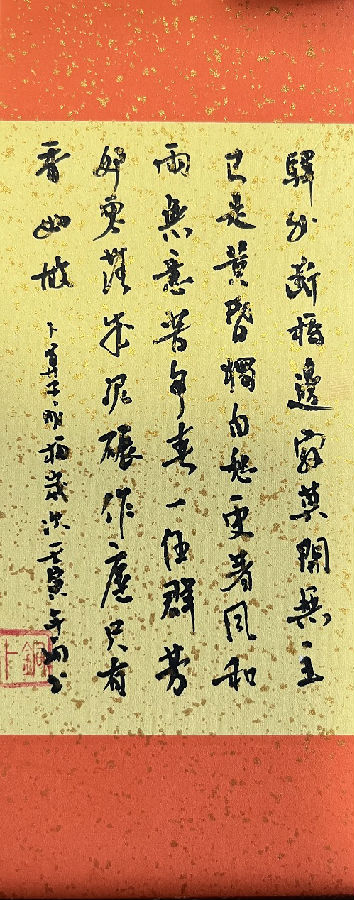 驛外断橋邊寂莫開無主
已是黃昏獨自愁更著風和
雨無意苦争春一任群芳
妒零落成泥碾作塵只有
香如故
卜算子咏梅歲次壬寅